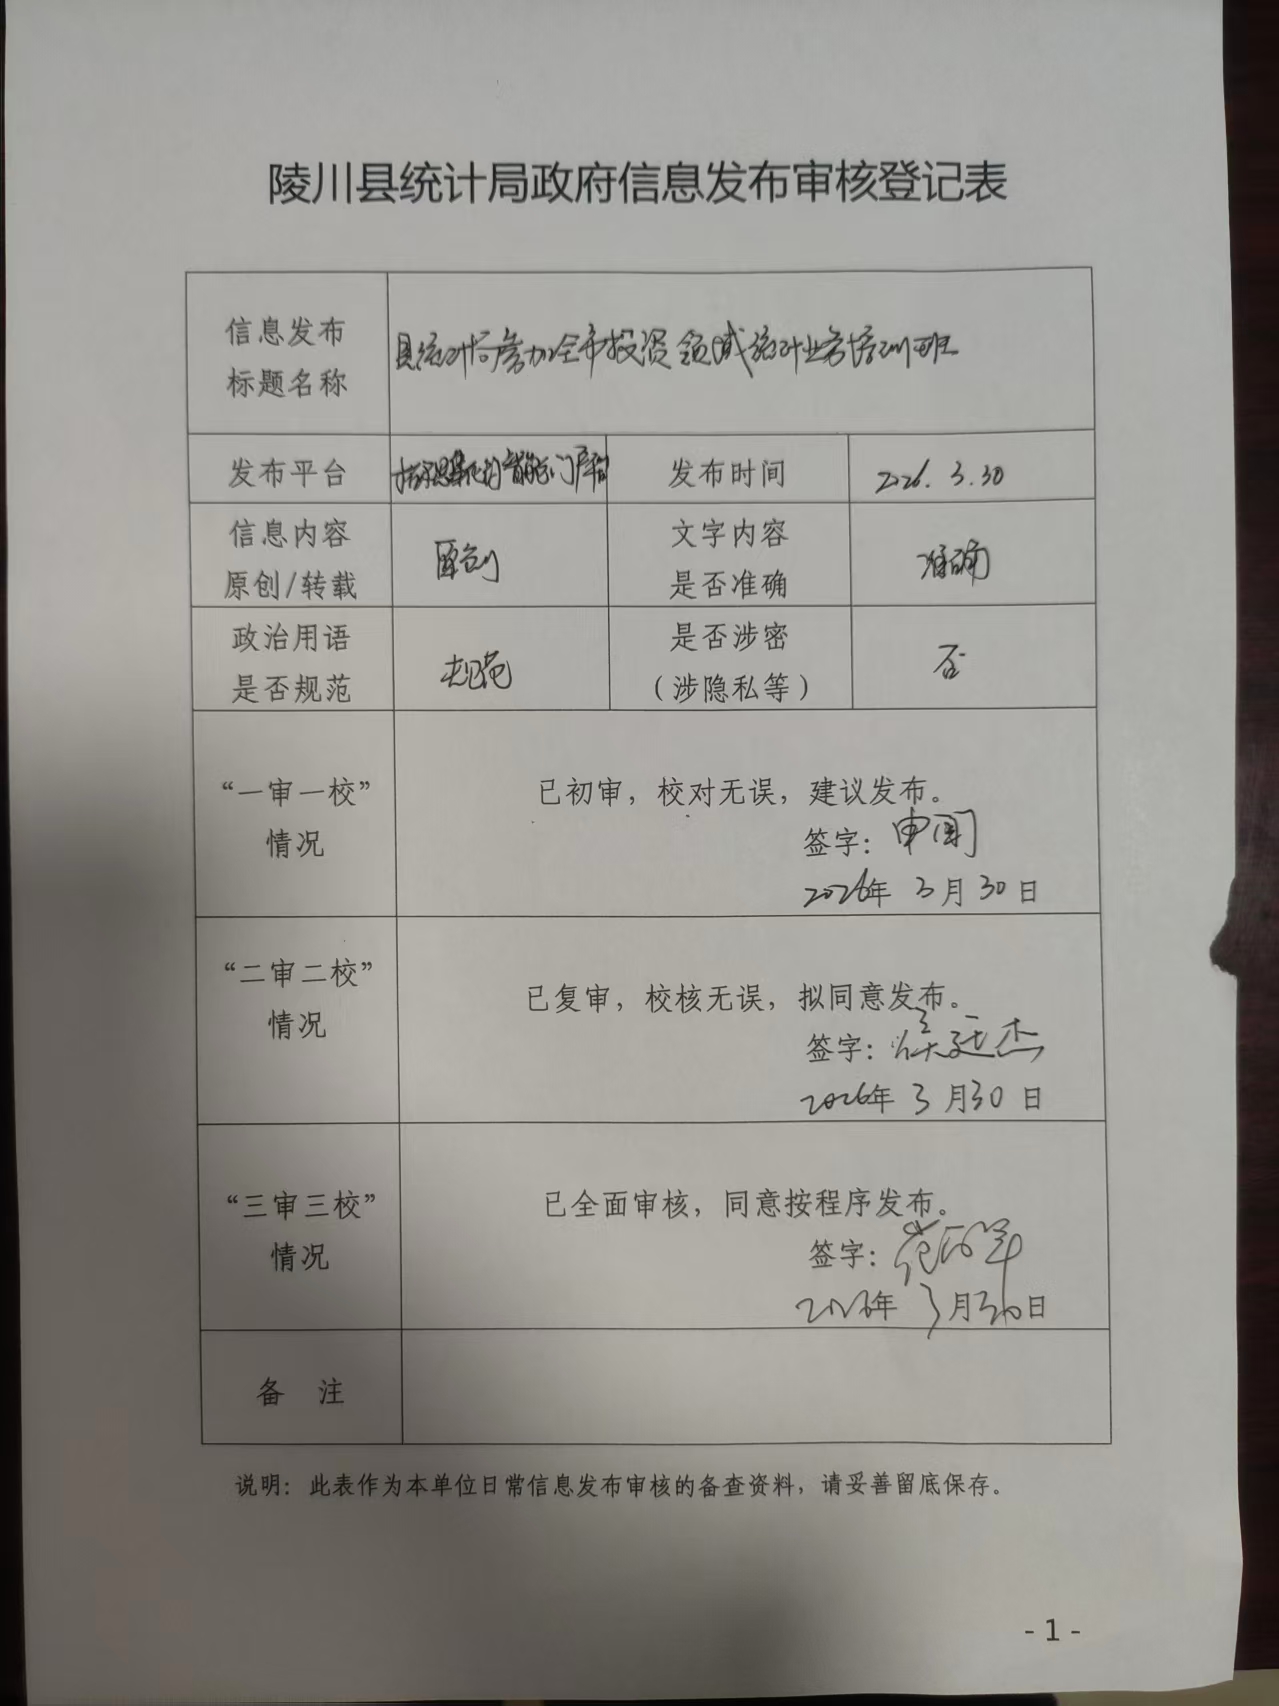 陵川县统计局政府信息发布审核登记表
信息发布
标题名称
县统计局参加全市投资领域统计业务培训班
发布平台
发布时间
2026.3.30
信息内容
原创/转载
原创
文字内容
是否准确
准确
政治用语
是否规范
规范
是否涉密
(涉隐私等)
否
“一审一校”
情况
已初审，校对无误，建议发布。
签字：申国
2026年 3月30日
“二审二校”
情况
已复审，校核无误，拟同意发布。
签字：侯廷杰
2026年 3月30日
“三审三校”
情况
已全面审核，同意按程序发布。
签字：
2026年 3月30日
备 注
说明：此表作为本单位日常信息发布审核的备查资料，请妥善留底保存。
- 1 -